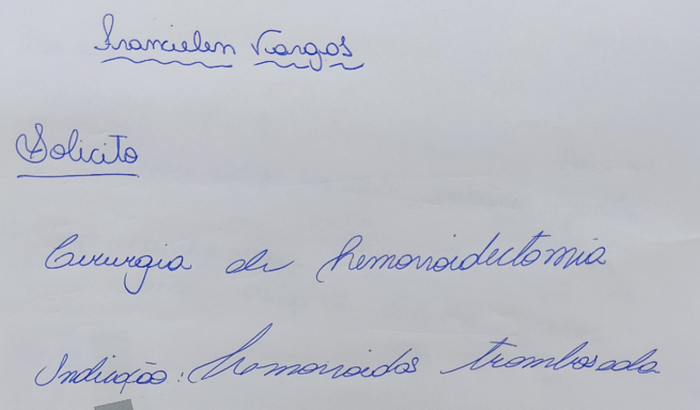 Francielen Vargas
Solicito
Cirurgia de hemorroidectomia
Indicação: hemorroidas trombosada